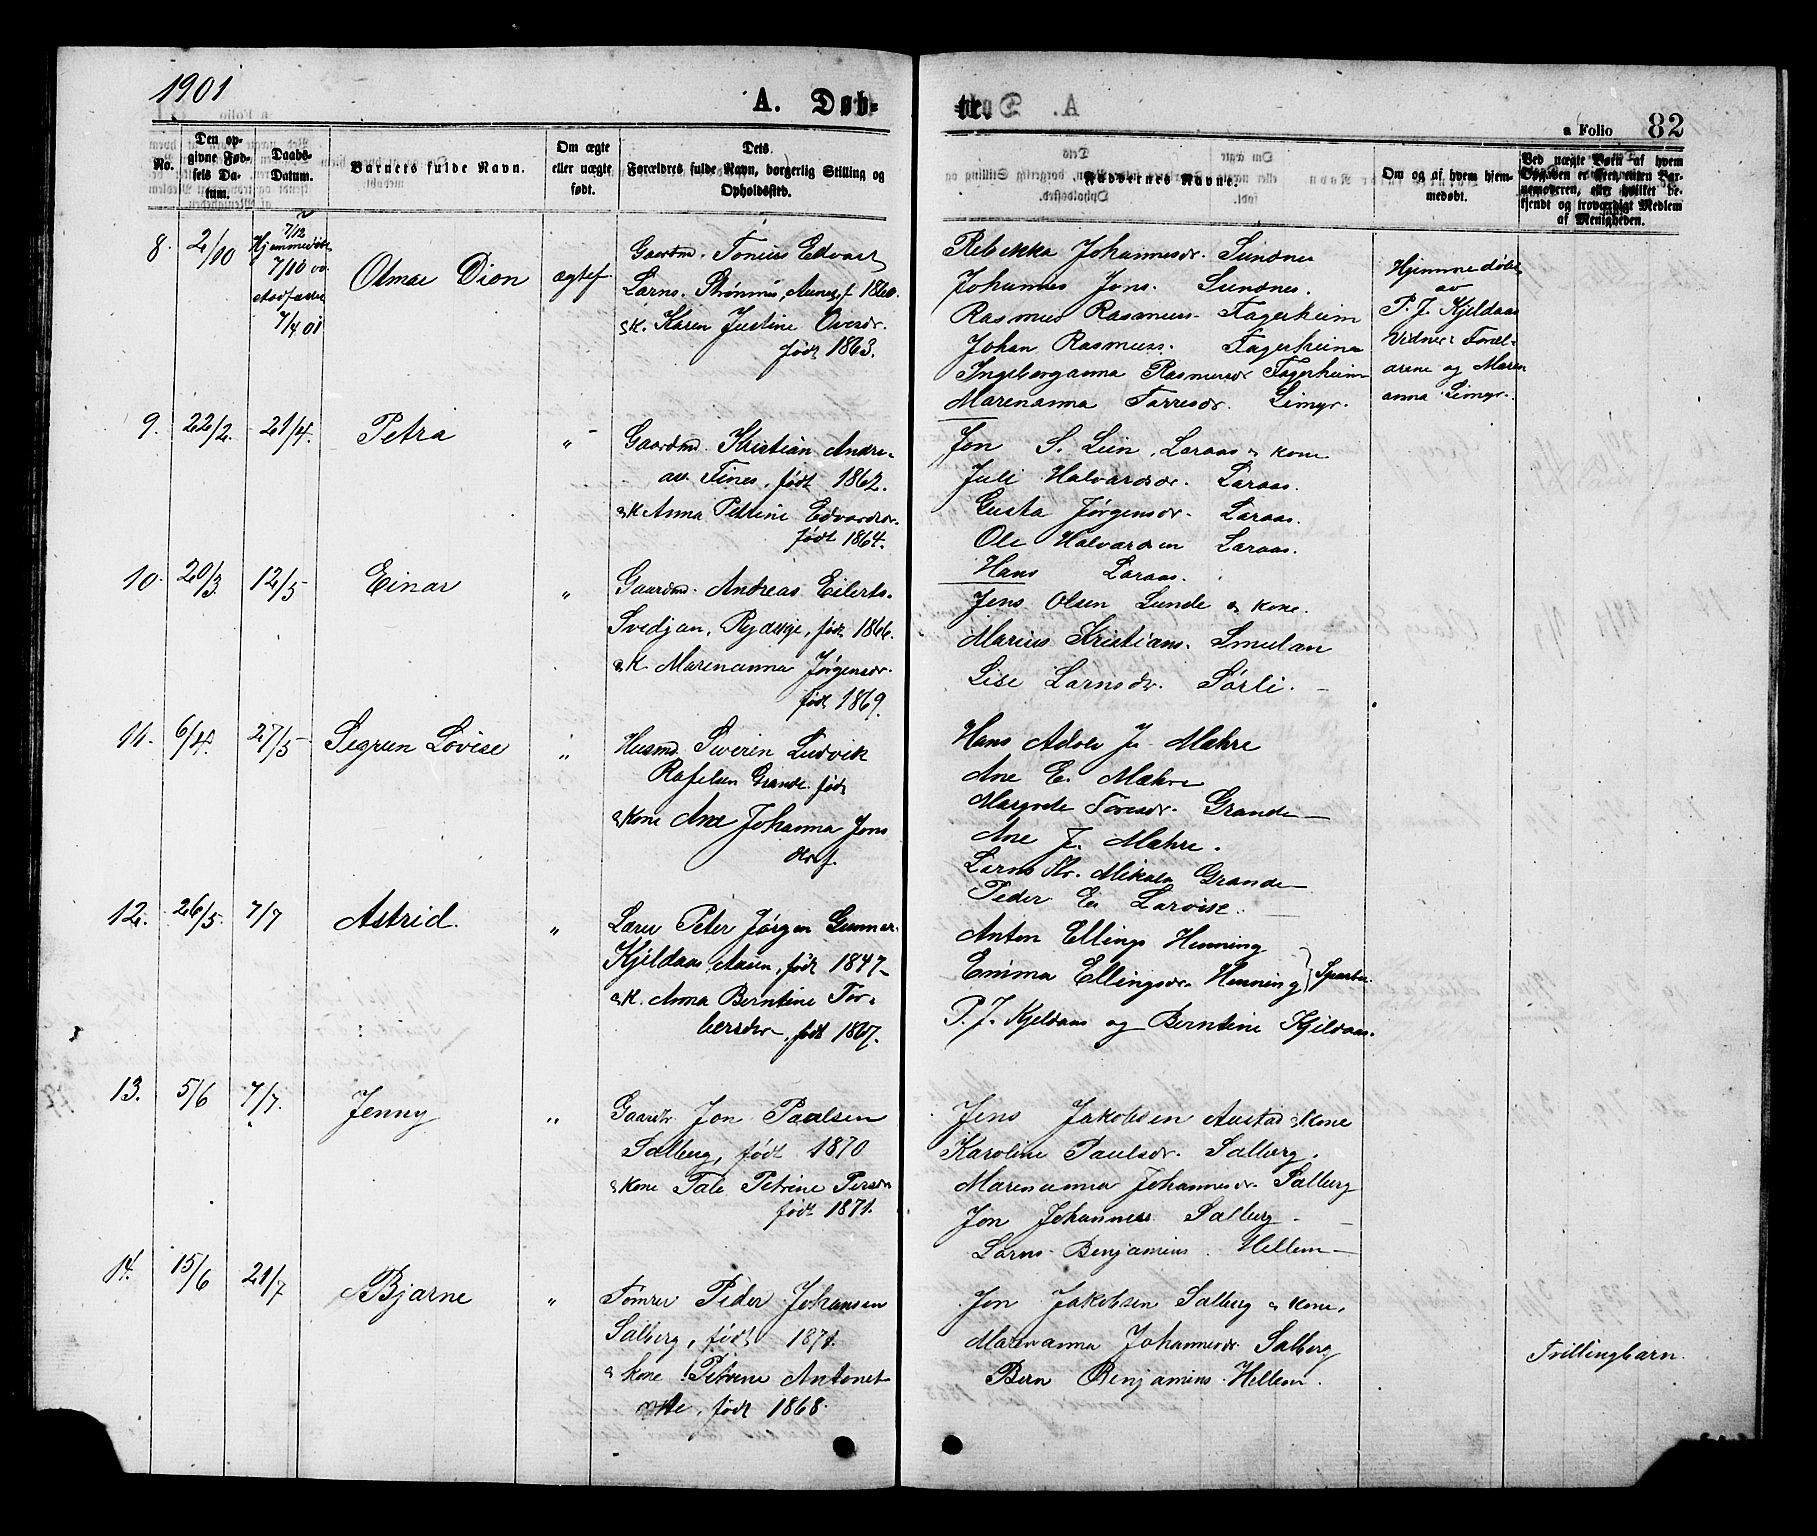 1901
A. Døb-
te.
a Folio 82
No.
Den op-
givne Fød-
sels Da-
tum.
Daabs-
Datum.
Barnets fulde Navn.
Om ægte
eller uægte
født.
Dets
Forældres fulde Navn, borgerlig Stilling og
Opholdssted.
Faddernes Navne.
Om og af hvem hjem-
medøbt.
Ved uægte Børn af hvem
Opgaven er skeet, enten Bar-
nemoderen, eller hvilket be-
kjendt og troværdigt Medlem
af Menigheden.
8. 2/10
Hjemmedøbt
7/10 00
Stadfæstet
7/4 01
Otmar Dion
ægtef
Gaardm. Tonius Edvart
Larns. Strømnes, f 1860.
& K. Karen Justine Oversdr.
født 1863.
Rebekka Johannesdr. Sundnes
Johannes Jons. Sundnes.
Rasmus Rasmuss. Fagerheim
Johan Rasmuss. Fagerheim
Ingeborganna Rasmusdr Fagerheim
Marenanna Torresdr. Limyr.
Hjemmedøbt
av
P. J. Kjeldaas
Vidner: Foræl-
drene og Maren
anna Limyr.
9. 22/2. 21/4. Petra "
Gaardm. Kristian Andre-
as. Tines, født 1862.
& K Anna Petrine Edvardsdr.
født 1864.
Jon S. Lein, Laraas & kone
Juli Halvardsdr. Laraas.
Gusta Jørgensdr. Laraas.
Ole Halvardsen Laraas.
Hans Laraas.
10. 20/3. 12/5 Einar "
Gaardmd. Andreas Eilerts.
Svedjan, Rydsege, født 1866.
& K. Marenanna Jørgensdr.
født 1869.
Jens Olsen Lunde & kone.
Marius Kristians. Smulan
Lise Larnsdr. Sørli.
11. 6/4. 27/5 Sigrun Lovise "
Husmd. Severin Ludvik
Rafelsen Grande. født
& kone Ane Johanna Jons
datr.
Hans Adolv J. Mæhre
Ane E. Mæhre
Margrete Toresdr. Grande
Ane J. Mæhre.
Larns Kr. Mikals Grande
Peder E. Larvise.
12. 26/5. 7/7 Astrid. "
Lærer Peter Jørgen Gunner.
Kjeldaas, Aasen, født 1847
& K. Anna Berntine Tor-
bersdr, født 1867.
Anton Ellings Henning
Emma Ellingsdr. Henning } Sparbu.
P. J. Kjeldaas og Berntine Kjeldaas.
13. 5/6 7/7. Jenny "
Gaardbr Jon Paulsen
Salberg, født 1870
& kone Tale Petrine Persdr
født 1871.
Jens Jakobsen Austad & kone
Karoline Paulsdr. Salberg.
Marenanna Johannesdr. Salberg
Jon Johanness. Salberg.
Larns Benjamins. Hellem
14. 15/6 21/7 Bjarne "
Tømrer Peder Johansen
Salberg, født 1871.
& kone Petrine Antonet-
te, født 1868.
Jon Jakobsen Salberg & kone,
Marenanna Johannesdr Salberg
Bern Benjamins. Hellem.
Tvillingbarn.